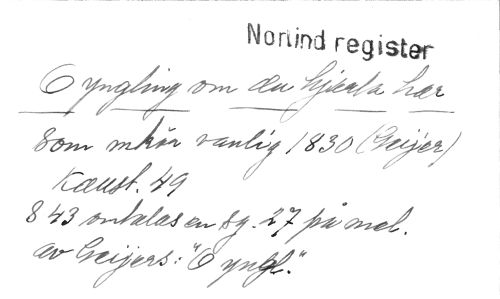 Norlind register
O yngling om du hjärta har
som mkör vanlig 1830 (Geijer)
Kaust. 49
843 omtalas en sg. 27 på mel.
av Geijers: "O yngl."